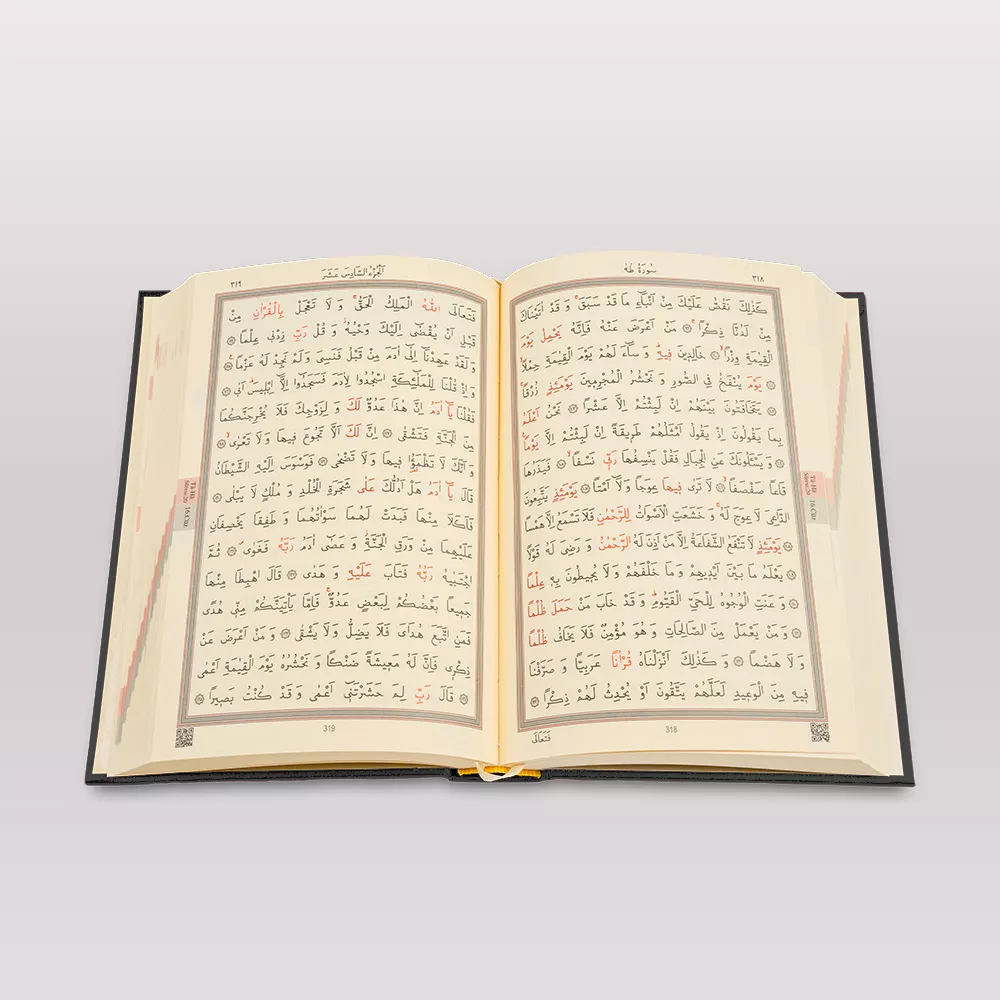 سُورَةُ طٰهٰ
٣١٨
كَذٰلِكَ نَقُصُّ عَلَيْكَ مِنْ اَنْبَٓاءِ مَا قَدْ سَبَقَۚ وَ قَدْ اٰتَيْنَاكَ
مِنْ لَدُنَّا ذِكْرًاۚ ۝ مَنْ اَعْرَضَ عَنْهُ فَاِنَّهُ يَحْمِلُ يَوْمَ
الْقِيٰمَةِ وِزْرًاۙ ۝ خَالِدٖينَ فٖيهِۜ وَ سَٓاءَ لَهُمْ يَوْمَ الْقِيٰمَةِ حِمْلًاۙ
۝ يَوْمَ يُنْفَخُ فِي الصُّورِ وَ نَحْشُرُ الْمُجْرِمٖينَ يَوْمَئِذٍ زُرْقًاۚ
۝ يَتَخَافَتُونَ بَيْنَهُمْ اِنْ لَبِثْتُمْ اِلَّا عَشْرًا ۝ نَحْنُ اَعْلَمُ
بِمَا يَقُولُونَ اِذْ يَقُولُ اَمْثَلُهُمْ طَرٖيقَةً اِنْ لَبِثْتُمْ اِلَّا يَوْمًا۟
۝ وَ يَسْـَٔلُونَكَ عَنِ الْجِبَالِ فَقُلْ يَنْسِفُهَا رَبّٖي نَسْفًاۙ ۝ فَيَذَرُهَا
قَاعًا صَفْصَفًاۙ ۝ لَا تَرٰى فٖيهَا عِوَجًا وَلَٓا اَمْتًاۜ ۝ يَوْمَئِذٍ يَتَّبِعُونَ
الدَّاعِيَ لَا عِوَجَ لَهُۚ وَ خَشَعَتِ الْاَصْوَاتُ لِلرَّحْمٰنِ فَلَا تَسْمَعُ اِلَّا هَمْسًا
۝ يَوْمَئِذٍ لَا تَنْفَعُ الشَّفَاعَةُ اِلَّا مَنْ اَذِنَ لَهُ الرَّحْمٰنُ وَ رَضِيَ لَهُ قَوْلًا
۝ يَعْلَمُ مَا بَيْنَ اَيْدٖيهِمْ وَ مَا خَلْفَهُمْ وَ لَا يُحٖيطُونَ بِهٖ عِلْمًا
۝ وَ عَنَتِ الْوُجُوهُ لِلْحَيِّ الْقَيُّومِۜ وَ قَدْ خَابَ مَنْ حَمَلَ ظُلْمًا
۝ وَ مَنْ يَعْمَلْ مِنَ الصَّالِحَاتِ وَ هُوَ مُؤْمِنٌ فَلَا يَخَافُ ظُلْمًا
وَ لَا هَضْمًا ۝ وَ كَذٰلِكَ اَنْزَلْنَاهُ قُرْاٰنًا عَرَبِيًّا وَ صَرَّفْنَا
فٖيهِ مِنَ الْوَعٖيدِ لَعَلَّهُمْ يَتَّقُونَ اَوْ يُحْدِثُ لَهُمْ ذِكْرًا ۝
318
فَتَعَالَى
Tâ-Hâ
Sûresi:20
16.Cüz
اَلْجُزْءُ السَّادِسَ عَشَرَ
٣١٩
فَتَعَالَى اللّٰهُ الْمَلِكُ الْحَقُّۚ وَ لَا تَعْجَلْ بِالْقُرْاٰنِ مِنْ
قَبْلِ اَنْ يُقْضٰٓى اِلَيْكَ وَحْيُهُۘ وَ قُلْ رَبِّ زِدْنٖي عِلْمًا ۝
وَ لَقَدْ عَهِدْنَٓا اِلٰٓى اٰدَمَ مِنْ قَبْلُ فَنَسِيَ وَ لَمْ نَجِدْ لَهُ عَزْمًا۟ ۝
وَ اِذْ قُلْنَا لِلْمَلٰٓئِكَةِ اسْجُدُوا لِاٰدَمَ فَسَجَدُٓوا اِلَّٓا اِبْلٖيسَۜ اَبٰى ۝
فَقُلْنَا يَٓا اٰدَمُ اِنَّ هٰذَا عَدُوٌّ لَكَ وَ لِزَوْجِكَ فَلَا يُخْرِجَنَّكُمَا
مِنَ الْجَنَّةِ فَتَشْقٰى ۝ اِنَّ لَكَ اَلَّا تَجُوعَ فٖيهَا وَ لَا تَعْرٰىۙ ۝
وَ اَنَّكَ لَا تَظْمَؤُ۬ا فٖيهَا وَ لَا تَضْحٰى ۝ فَوَسْوَسَ اِلَيْهِ الشَّيْطَانُ
قَالَ يَٓا اٰدَمُ هَلْ اَدُلُّكَ عَلٰى شَجَرَةِ الْخُلْدِ وَ مُلْكٍ لَا يَبْلٰى ۝
فَاَكَلَا مِنْهَا فَبَدَتْ لَهُمَا سَوْاٰتُهُمَا وَ طَفِقَا يَخْصِفَانِ
عَلَيْهِمَا مِنْ وَرَقِ الْجَنَّةِۘ وَ عَصٰٓى اٰدَمُ رَبَّهُ فَغَوٰىۖ ۝ ثُمَّ
اجْتَبٰيهُ رَبُّهُ فَتَابَ عَلَيْهِ وَ هَدٰى ۝ قَالَ اهْبِطَا مِنْهَا
جَمٖيعًا بَعْضُكُمْ لِبَعْضٍ عَدُوٌّۚ فَاِمَّا يَأْتِيَنَّكُمْ مِنّٖي هُدًى
فَمَنِ اتَّبَعَ هُدَايَ فَلَا يَضِلُّ وَ لَا يَشْقٰى ۝ وَ مَنْ اَعْرَضَ عَنْ
ذِكْرٖي فَاِنَّ لَهُ مَعٖيشَةً ضَنْكًا وَ نَحْشُرُهُ يَوْمَ الْقِيٰمَةِ اَعْمٰى
۝ قَالَ رَبِّ لِمَ حَشَرْتَنٖٓي اَعْمٰى وَ قَدْ كُنْتُ بَصٖيرًا ۝
319
Tâ-Hâ
Sûresi:20
16.Cüz